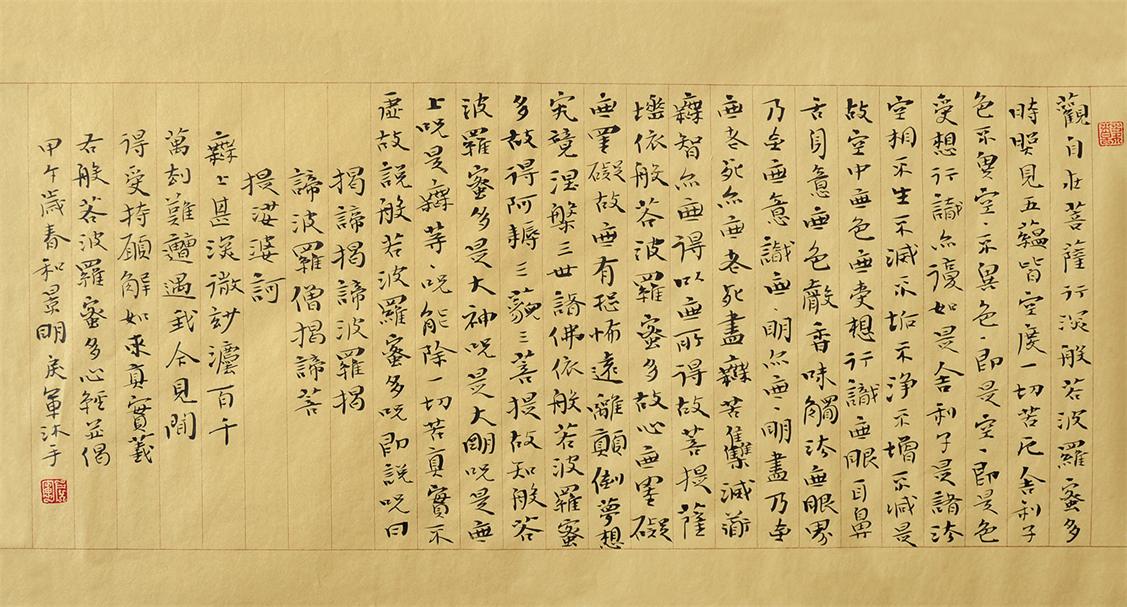 觀自在菩薩行深般若波羅蜜多
時照見五蘊皆空度一切苦厄舍利子
色不異空々不異色々即是空々即是色
受想行識亦復如是舍利子是諸法
空相不生不滅不垢不淨不增不減是
故空中無色無受想行識無眼耳鼻
舌身意無色聲香味觸法無眼界
乃至無意識無々明亦無々明盡乃至
無老死亦無老死盡無苦集滅道
無智亦無得以無所得故菩提薩
埵依般若波羅蜜多故心無罣礙
無罣礙故無有恐怖遠離顛倒夢想
究竟涅槃三世諸佛依般若波羅蜜
多故得阿耨三藐三菩提故知般若
波羅蜜多是大神咒是大明咒是無
上咒是無等咒能除一切苦真實不
虛故說般若波羅蜜多咒即說咒曰
揭諦揭諦波羅揭
諦波羅僧揭諦菩
提娑婆訶
無上甚深微妙法百千
萬劫難遭遇我今見聞
得受持願解如來真實義
右般若波羅蜜多心經並偈
甲午歲春和景明軍沐手